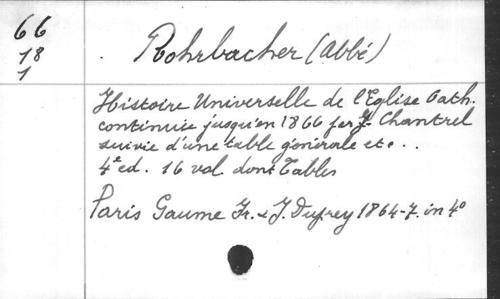 66
18
1
Rohrbacher (Abbé)
Histoire Universelle de l'Eglise Cath.
continuée jusqu'en 1866 par J. Chantrel
suivie d'une table générale etc..
4e ed. 16 vol. dont Tables
Paris Gaume Fr. & J. Duprey 1864-7. in 4o